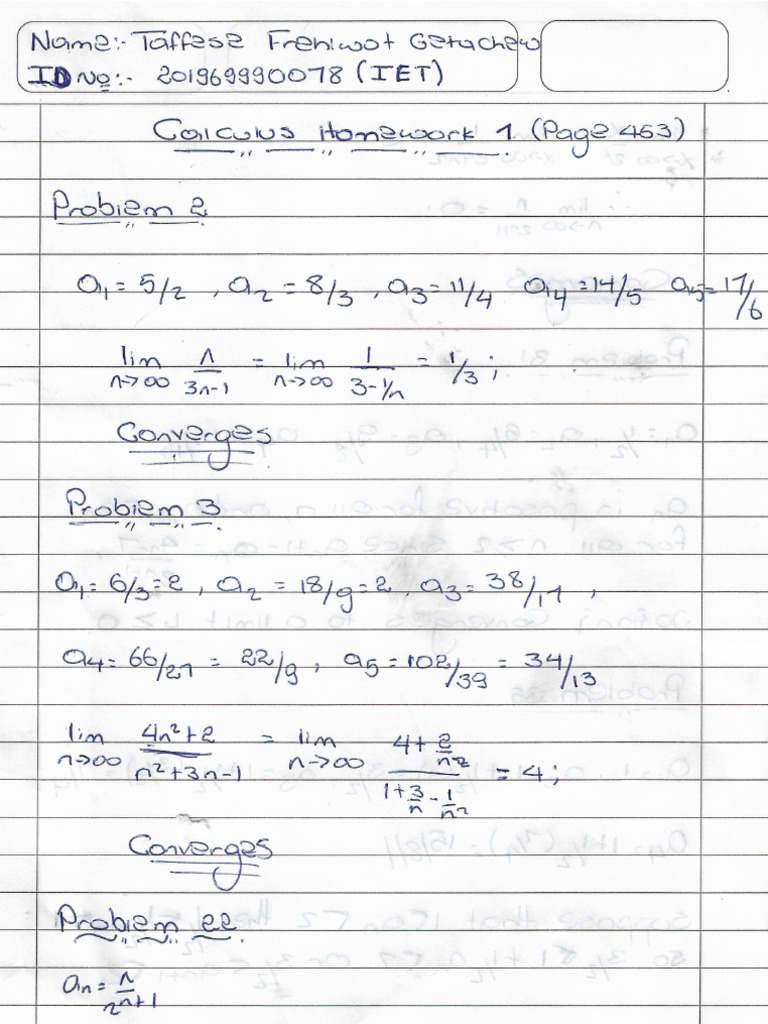 Name:- Taffese Frehiwot Getachew
ID No:- 201969990078 (IET)
Calculus Homework 1 (Page 453)
Problem 2
a1 = 5/2 , a2 = 8/3 , a3 = 11/4 a4 = 14/5 a5 = 17/6
lim n→∞ n/3n-1 = lim n→∞ 1/3-1/n = 1/3 ;
Converges
Problem 3
a1 = 6/3 = 2 , a2 = 18/9 = 2 , a3 = 38/17 ,
a4 = 66/27 = 22/9 , a5 = 102/39 = 34/13
lim n→∞ 4n²+2/n²+3n-1 = lim n→∞ 4+2/n²/1+3/n-1/n² = 4 ;
Converges
Problem 22
an = n/2^n+1